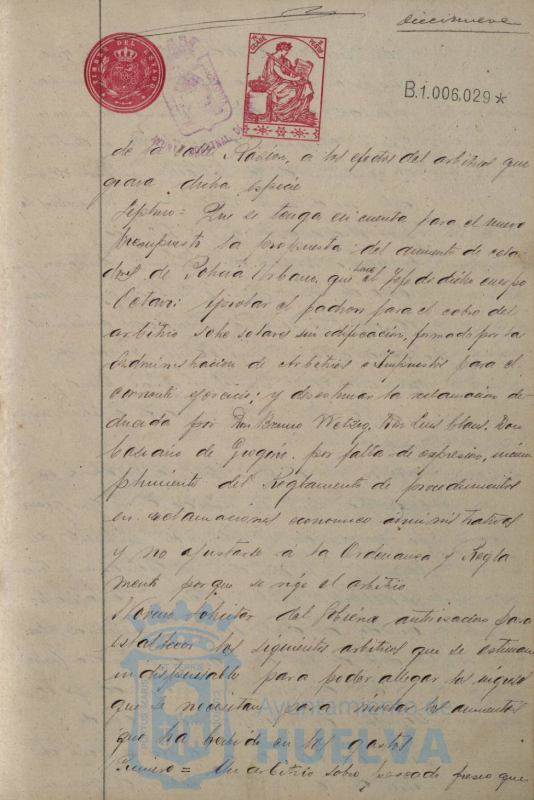 diecinueve
TIMBRE DEL ESTADO
B.1.006,029*
de la     , a los efectos del arbitrio que
grava dicha especie
Septimo = Que se tenga en cuenta para el nuevo
Presupuesto la propuesta del aumento de cela
dores de Policia Urbana, que hace el Jefe de dicho cuerpo
Octavo: aprobar el padron para el cobro del
arbitrio sobre solares sin edificación, formado por la
Administracion de Arbitrios e Impuestos para el
corriente ejercicio; y desestimar la reclamacion de-
ducida por Don Bruno Wetzig, Don Luis Claus, Don
de     por falta de expresion, incum
plimiento del Reglamento de procedimientos
en reclamaciones economico administrativas
y no ajustarse á la Ordenanza y Regla-
mento porque se rige el arbitrio
Noveno solicitar del Gobierno autorizacion para
establecer los siguientes arbitrios que se estiman
indispensable para poder allegar los ingresos
que se necesitan para nivelar los aumentos
que ha habido en los gastos
Primero = Un arbitrio sobre pescado fresco que
Ayuntamiento de
HUELVA